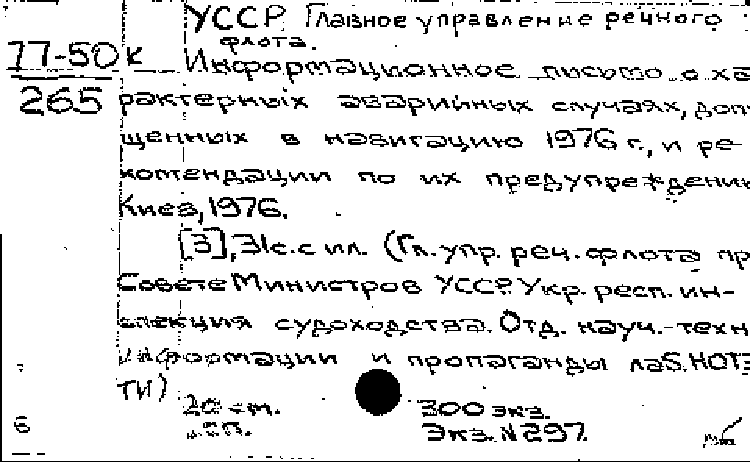 УССР Главное управление речного
флота.
77-50к
265
Информационное письмо о ха
рактерных аварийных случаях, доп
щенных в навигацию 1976 г., и ре-
комендации по их предупреждению
Киев, 1976.
[3], 31с. с ил. (Гл. упр. реч. флота пр
Совете Министров УССР. Укр. респ. ин-
спекция судоходства. Отд. науч.-техн
информации и пропаганды
ТИ)
20 см.
300 экз.
Экз. N 297.
6